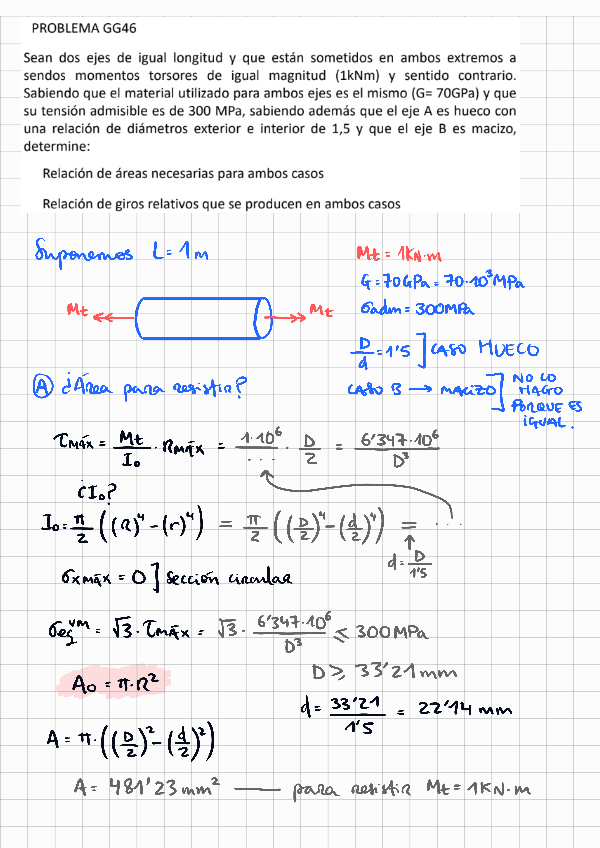 PROBLEMA GG46
Sean dos ejes de igual longitud y que están sometidos en ambos extremos a
sendos momentos torsores de igual magnitud (1kNm) y sentido contrario.
Sabiendo que el material utilizado para ambos ejes es el mismo (G= 70GPa) y que
su tensión admisible es de 300 MPa, sabiendo además que el eje A es hueco con
una relación de diámetros exterior e interior de 1,5 y que el eje B es macizo,
determine:
Relación de áreas necesarias para ambos casos
Relación de giros relativos que se producen en ambos casos
Suponemos L = 1m
Mt = 1KN·m
G = 70GPa = 70·10³MPa
σadm = 300MPa
Mt Mt
D/d = 1'5 ] CASO HUECO
CASO B → MACIZO ] NO LO HAGO PORQUE ES IGUAL.
Ⓐ ¿Área para resistir?
τmáx = Mt/I₀ · Rmáx = 1·10⁶/... · D/2 = 6'347·10⁶/D³
¿I₀?
I₀ = π/2 ((R)⁴-(r)⁴) = π/2 ((D/2)⁴-(d/2)⁴) = ...
d = D/1'5
σxmáx = 0 ] sección circular
σeqᵛᵐ = √3 · τmáx = √3 · 6'347·10⁶/D³ ≤ 300MPa
D ≥ 33'21mm
A₀ = π·R²
d = 33'21/1'5 = 22'14 mm
A = π·((D/2)²-(d/2)²)
A = 481'23mm² — para resistir Mt = 1KN·m